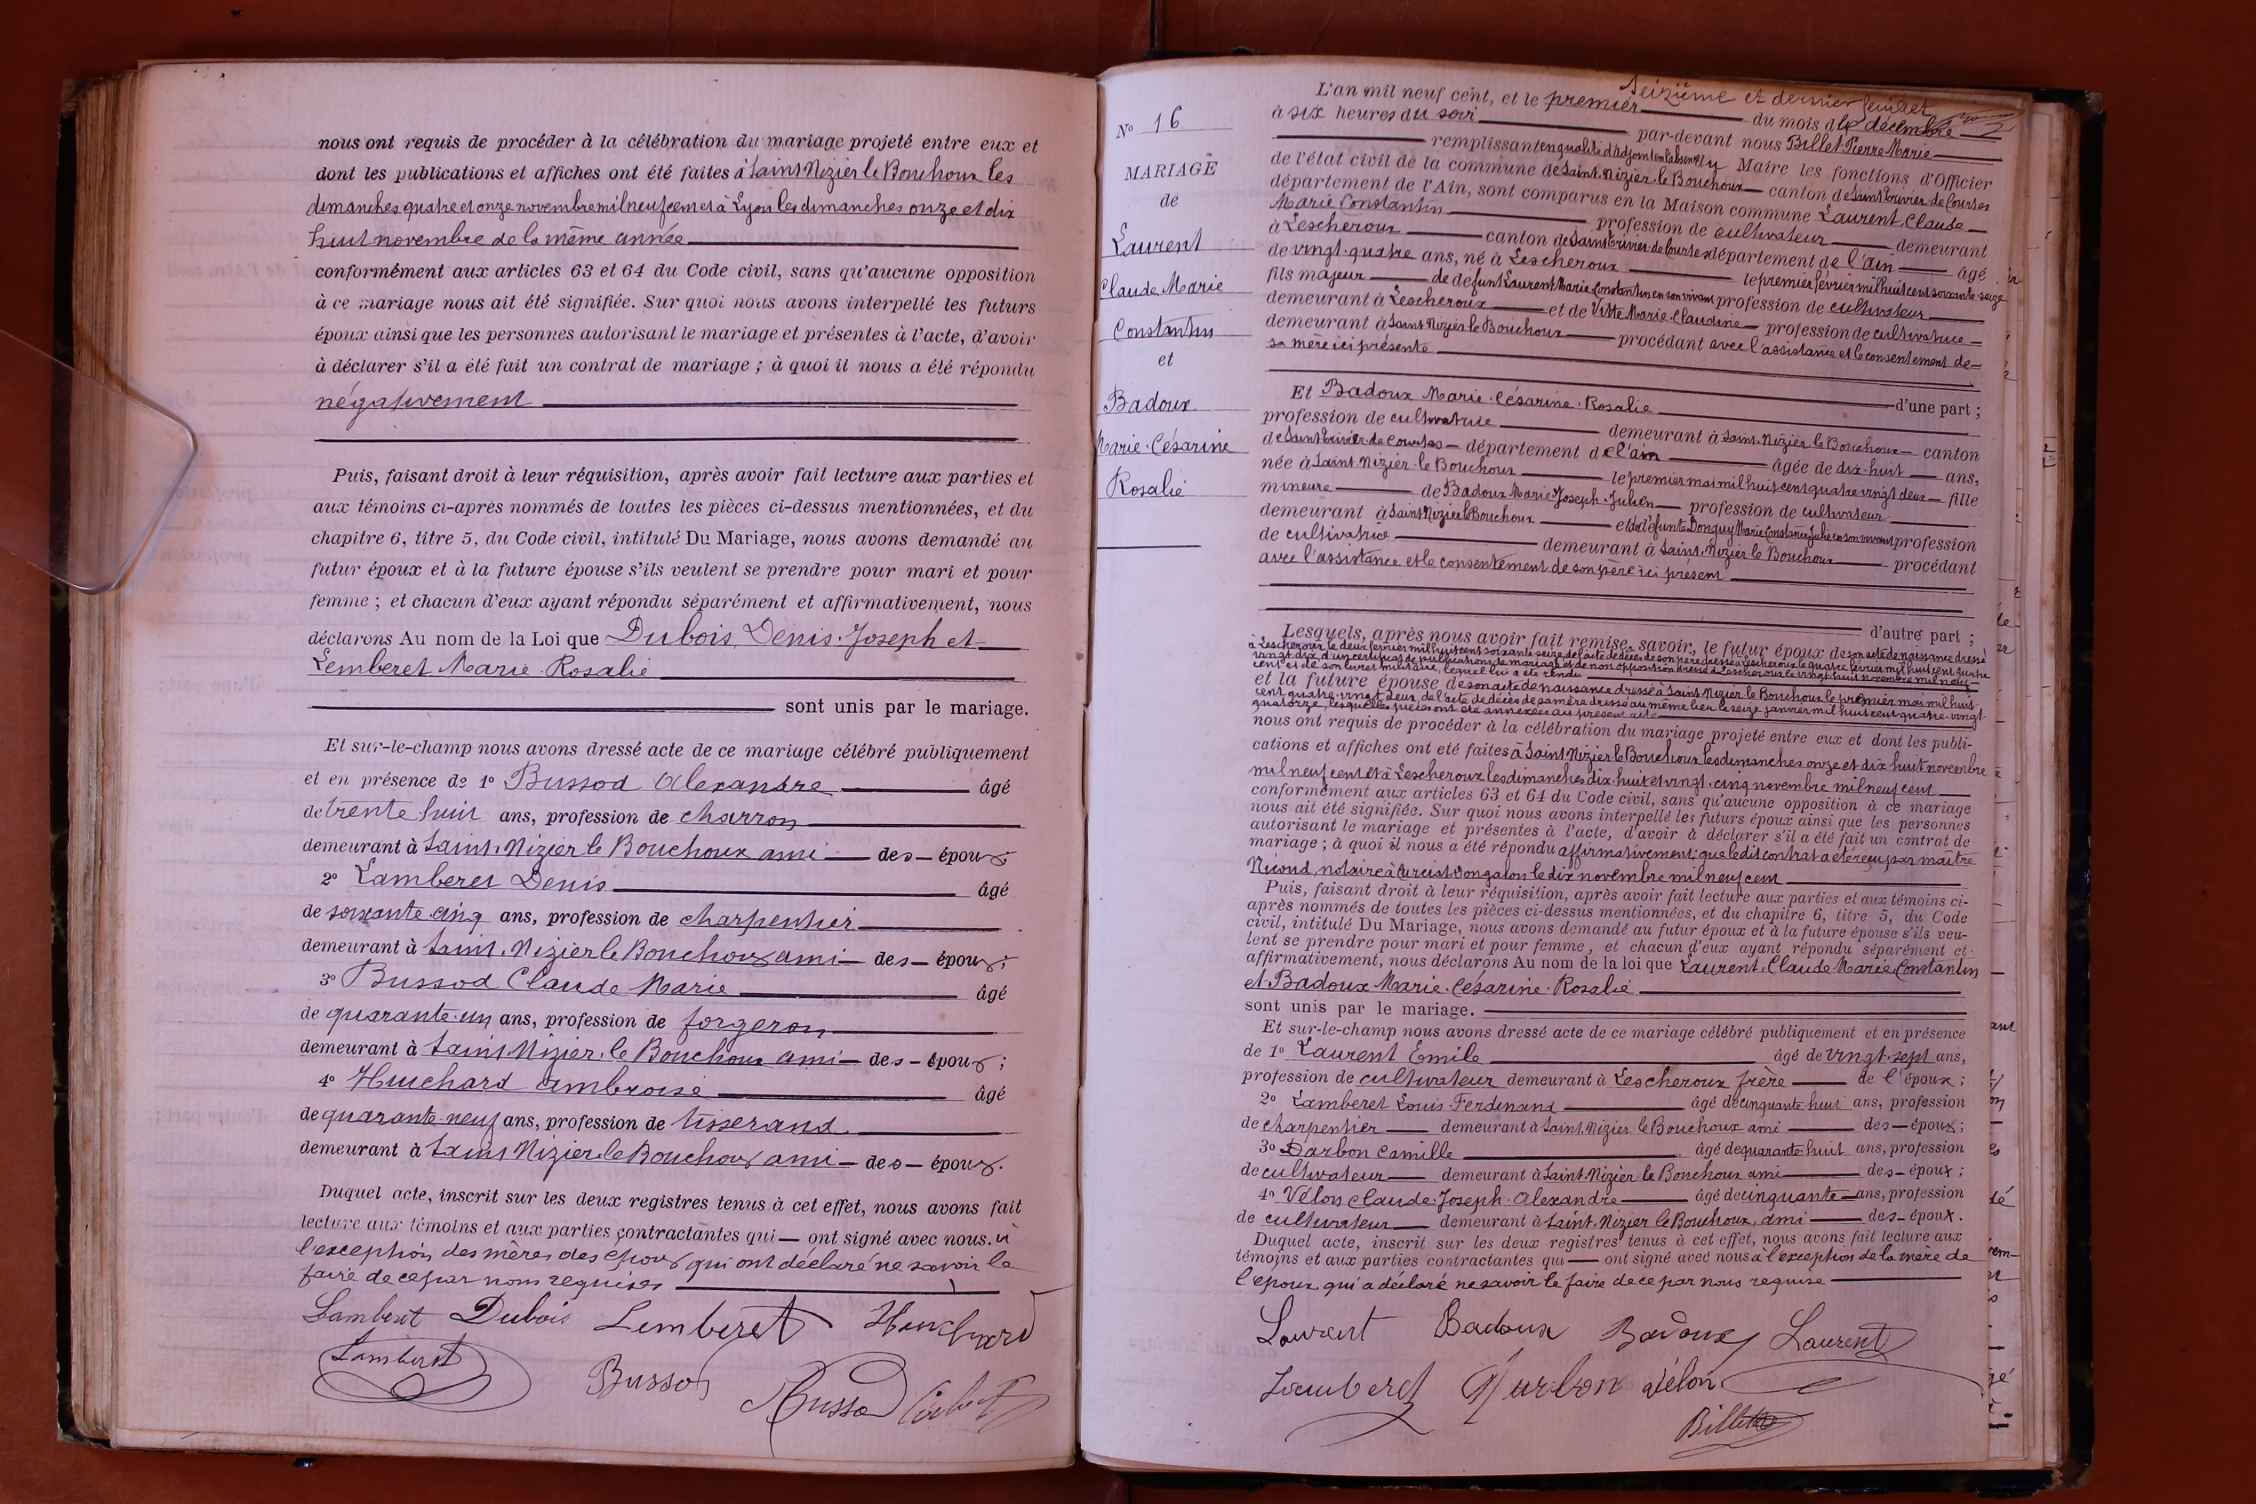 nous ont requis de procéder à la célébration du mariage projeté entre eux et
dont les publications et affiches ont été faites à Saint Nizier le Bouchoux les
dimanches quatre et onze novembre mil neuf cent et à Lyon les dimanches onze et dix
huit novembre de la même année
conformément aux articles 63 et 64 du Code civil, sans qu'aucune opposition
à ce mariage nous ait été signifiée. Sur quoi nous avons interpellé les futurs
époux ainsi que les personnes autorisant le mariage et présentes à l'acte, d'avoir
à déclarer s'il a été fait un contrat de mariage ; à quoi il nous a été répondu
négativement
Puis, faisant droit à leur réquisition, après avoir fait lecture aux parties et
aux témoins ci-après nommés de toutes les pièces ci-dessus mentionnées, et du
chapitre 6, titre 5, du Code civil, intitulé Du Mariage, nous avons demandé au
futur époux et à la future épouse s'ils veulent se prendre pour mari et pour
femme ; et chacun d'eux ayant répondu séparément et affirmativement, nous
déclarons Au nom de la Loi que Dubois Denis Joseph et
Lemberet Marie Rosalie
sont unis par le mariage.
Et sur-le-champ nous avons dressé acte de ce mariage célébré publiquement
et en présence de 1° Bussod Alexandre âgé
de trente huit ans, profession de charron
demeurant à Saint-Nizier le Bouchoux ami des époux
2° Lamberet Denis âgé
de soixante cinq ans, profession de charpentier
demeurant à Saint-Nizier le Bouchoux ami des époux ;
3° Bussod Claude Marie âgé
de quarante-un ans, profession de forgeron
demeurant à Saint Nizier le Bouchoux ami des époux ;
4° Huchard Ambroise âgé
de quarante-neuf ans, profession de tisserand
demeurant à Saint Nizier le Bouchoux ami des époux.
Duquel acte, inscrit sur les deux registres tenus à cet effet, nous avons fait
lecture aux témoins et aux parties contractantes qui ont signé avec nous. à
l'exception des mères des époux qui ont déclaré ne savoir le
faire de ce par nous requises
Lambert Dubois Lemberet Huchard
Lamberet Bussod Bussod
Seizième et dernier feuillet
N° 16
MARIAGE
de
Laurent
Claude Marie
Constantin
et
Badoux
Marie-Césarine
Rosalie
L'an mil neuf cent, et le premier du mois de décembre
à six heures du soir par-devant nous Billet Pierre Marie
remplissant en qualité d'adjoint en l'absence du Maire les fonctions d'Officier
de l'état civil de la commune de Saint-Nizier-le Bouchoux canton de Saint Trivier de Courtes
département de l'Ain, sont comparus en la Maison commune Laurent Claude
Marie Constantin profession de cultivateur demeurant
à Lescheroux canton de Saint Trivier de Courtes département de l'Ain âgé
de vingt-quatre ans, né à Lescheroux le premier février mil huit cent soixante seize
fils majeur de defunt Laurent Marie Constantin en son vivant profession de cultivateur
demeurant à Lescheroux et de Vitte Marie-Claudine profession de cultivatrice
demeurant à Saint Nizier le Bouchoux procédant avec l'assistance et le consentement de
sa mère ici présente
d'une part ;
Et Badoux Marie-Césarine-Rosalie
profession de cultivatrice demeurant à Saint-Nizier le Bouchoux canton
de Saint Trivier-de Courtes département de l'Ain âgée de dix-huit ans,
née à Saint-Nizier-le Bouchoux le premier mai mil huit cent quatre vingt deux fille
mineure de Badoux Marie Joseph-Julien profession de cultivateur
demeurant à Saint Nizier le Bouchoux et de défunte Donguy Marie Constance Julie en son vivant profession
de cultivatrice demeurant à Saint-Nizier le Bouchoux procédant
avec l'assistance et le consentement de son père ici présent
d'autre part ;
Lesquels, après nous avoir fait remise, savoir, le futur époux de son acte de naissance dressé
à Lescheroux le deux février mil huit cent soixante seize de l'acte de décès de son père dressé à Lescheroux le quatre février mil huit cent quatre
vingt dix, d'un certificat de publications de mariage et de non opposition dressé à Lescheroux le vingt huit novembre mil neuf
cent et de son livret militaire, lequel lui a été rendu
et la future épouse de son acte de naissance dressé à Saint Nizier le Bouchoux le premier mai mil huit
cent quatre-vingt deux, de l'acte de décès de sa mère dressé au même lieu le seize janvier mil huit cent quatre-vingt
quatorze, lesquelles pièces ont été annexées au présent acte
nous ont requis de procéder à la célébration du mariage projeté entre eux et dont les publi-
cations et affiches ont été faites à Saint Nizier le Bouchoux les dimanches onze et dix huit novembre
mil neuf cent et à Lescheroux les dimanches dix-huit et vingt-cinq novembre mil neuf cent
conformément aux articles 63 et 64 du Code civil, sans qu'aucune opposition à ce mariage
nous ait été signifiée. Sur quoi nous avons interpellé les futurs époux ainsi que les personnes
autorisant le mariage et présentes à l'acte, d'avoir à déclarer s'il a été fait un contrat de
mariage ; à quoi il nous a été répondu affirmativement ; que le dit contrat a été reçu par maître
Nicoud, notaire à Curciat Dongalon le dix novembre mil neuf cent
Puis, faisant droit à leur réquisition, après avoir fait lecture aux parties et aux témoins ci-
après nommés de toutes les pièces ci-dessus mentionnées, et du chapitre 6, titre 5, du Code
civil, intitulé Du Mariage, nous avons demandé au futur époux et à la future épouse s'ils veu-
lent se prendre pour mari et pour femme, et chacun d'eux ayant répondu séparément et
affirmativement, nous déclarons Au nom de la loi que Laurent Claude Marie Constantin
et Badoux Marie-Césarine-Rosalie
sont unis par le mariage.
Et sur-le-champ nous avons dressé acte de ce mariage célébré publiquement et en présence
de 1° Laurent Emile âgé de vingt-sept ans,
profession de cultivateur demeurant à Lescheroux frère de l'époux ;
2° Lamberet Louis Ferdinand âgé de cinquante huit ans, profession
de charpentier demeurant à Saint-Nizier le Bouchoux ami des époux ;
3° Darbon Camille âgé de quarante huit ans, profession
de cultivateur demeurant à Saint-Nizier le Bouchoux ami des époux ;
4° Vélon Claude-Joseph-Alexandre âgé de cinquante ans, profession
de cultivateur demeurant à Saint-Nizier le Bouchoux, ami des époux.
Duquel acte, inscrit sur les deux registres tenus à cet effet, nous avons fait lecture aux
témoins et aux parties contractantes qui ont signé avec nous à l'exception de la mère de
l'époux qui a déclaré ne savoir le faire de ce par nous requise
Laurent Badoux Badoux Laurent
Lamberet Darbon Vélon
Billet